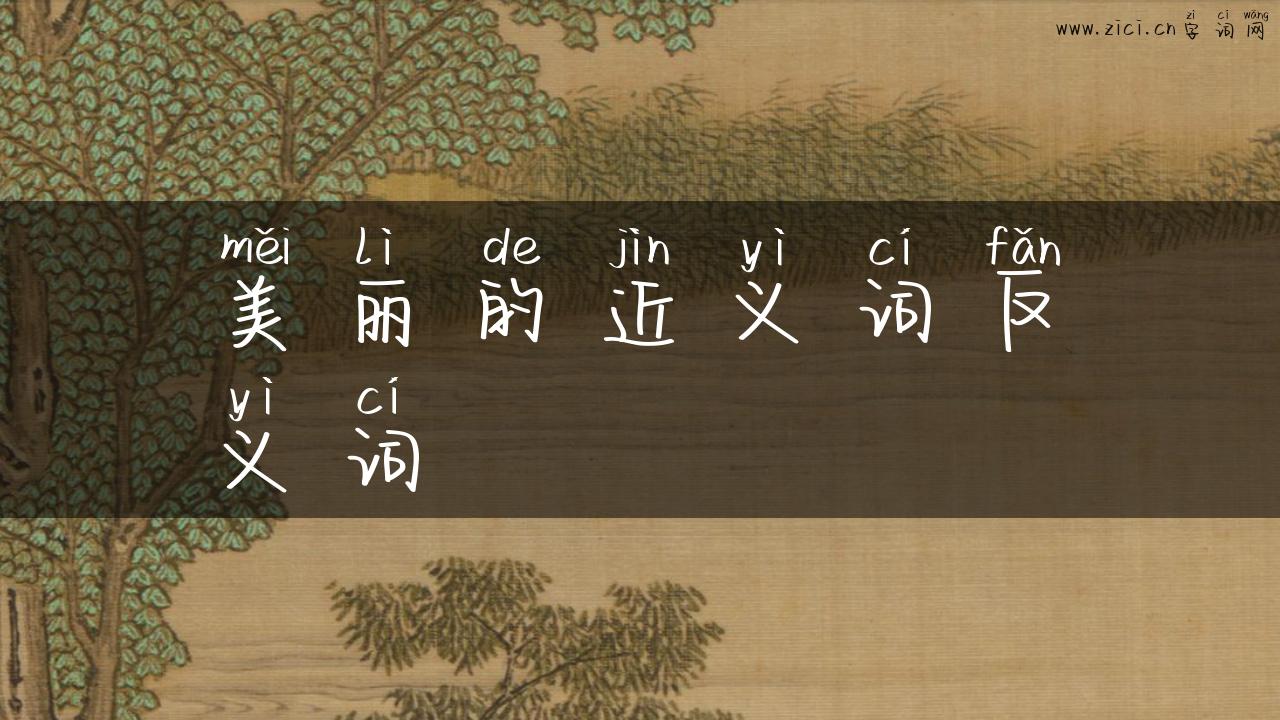 zì cí wǎng
www.zici.cn 字词网
měi lì de jìn yì cí fǎn
美丽的近义词反
yì cí
义词